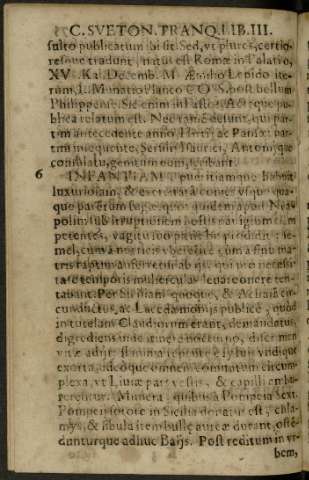 C. SVETON. TRANQ. LIB. III.
sulto publicatum ibi sit. Sed, vt plures, certio-
resque tradunt, natus est Romæ in Palatio,
XV. Kal. Decemb. M. Æmilio Lepido ite-
rum, L. Munatio Planco COS. post bellum
Philippense. Sic enim in Fastos Actaque pu-
blica relatum est. Nec tamen desunt, qui par-
tim antecedente anno, Hirtij ac Pansæ: par-
tim insequente, Seruilij Isaurici, Antonijque
consulatu, genitum eum, scribant.
6 INFANTIAM, pueritiamque habuit
luxuriosam, & exercitatā comes vsque qua-
que parentum fugæ: quos quidem apud Nea-
polim, sub irruptionem hostis nauigium clam
petentes, vagitu suo pæne bis prodidit: se-
mel, cum à nutricis vbere, ite cum à sinu ma-
tris raptim auferretur ab ijs, qui pro necessi-
tate temporis mulierculas leuare onere ten-
tabant. Per Siciliam quoque, & Achaiā cir-
cunductus, ac Lacedæmonijs publicè, quod
in tutelam Claudiorum erant, demandatus,
digrediens inde itinere nocturno, discrimen
vitæ adijt flamma repente è syluis vndique
exorta, adeoque omnem comitatum circum-
plexa, vt Liuiæ pars vestis, & capilli ambu-
rerentur. Munera, quibus à Pompeia Sext.
Pompeij sorore in Sicilia donatus est, chla-
mys, & fibula, item bullæ aureæ durant, ostē-
dunturque adhuc Baijs. Post reditum in vr-
bem,